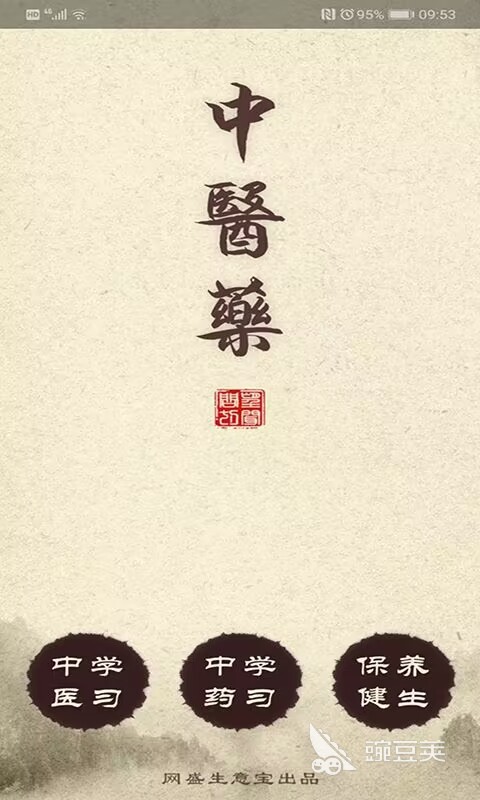 HD 4G 95% 09:53
中
醫
藥
望聞
問切
中学 中学 保养
医习 药习 健生
豌豆荚
网盛生意宝出品